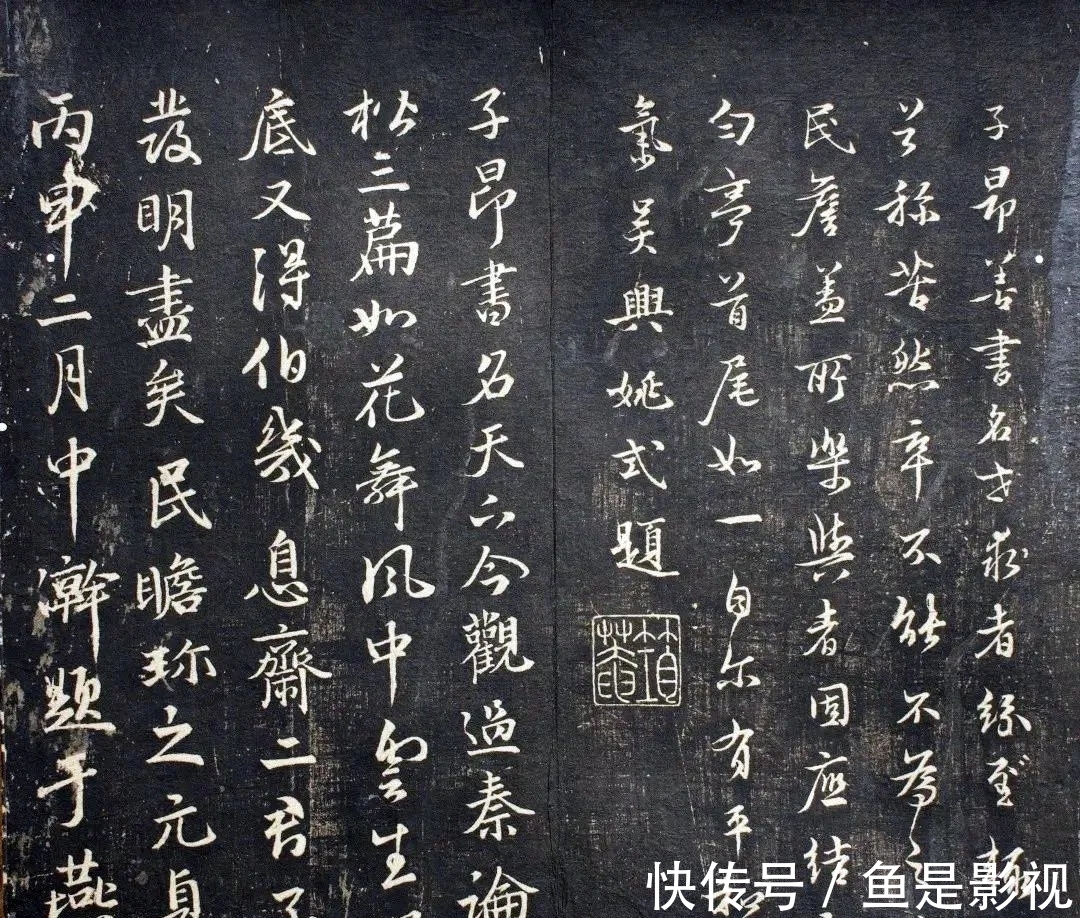 子昂善書名世求者至輒
称苦然卒不能不為之
民詹蓋所樂與者固應結
匀亭首尾如一自尔有平和
氣吴興姚式題
子昂書名天下今觀過秦論
三篇如花舞風中雲生
底又得伯幾息齋二君子
發明盡矣民瞻珎之元貞
丙申二月中澣题于燕
快传号 / 鱼是影视